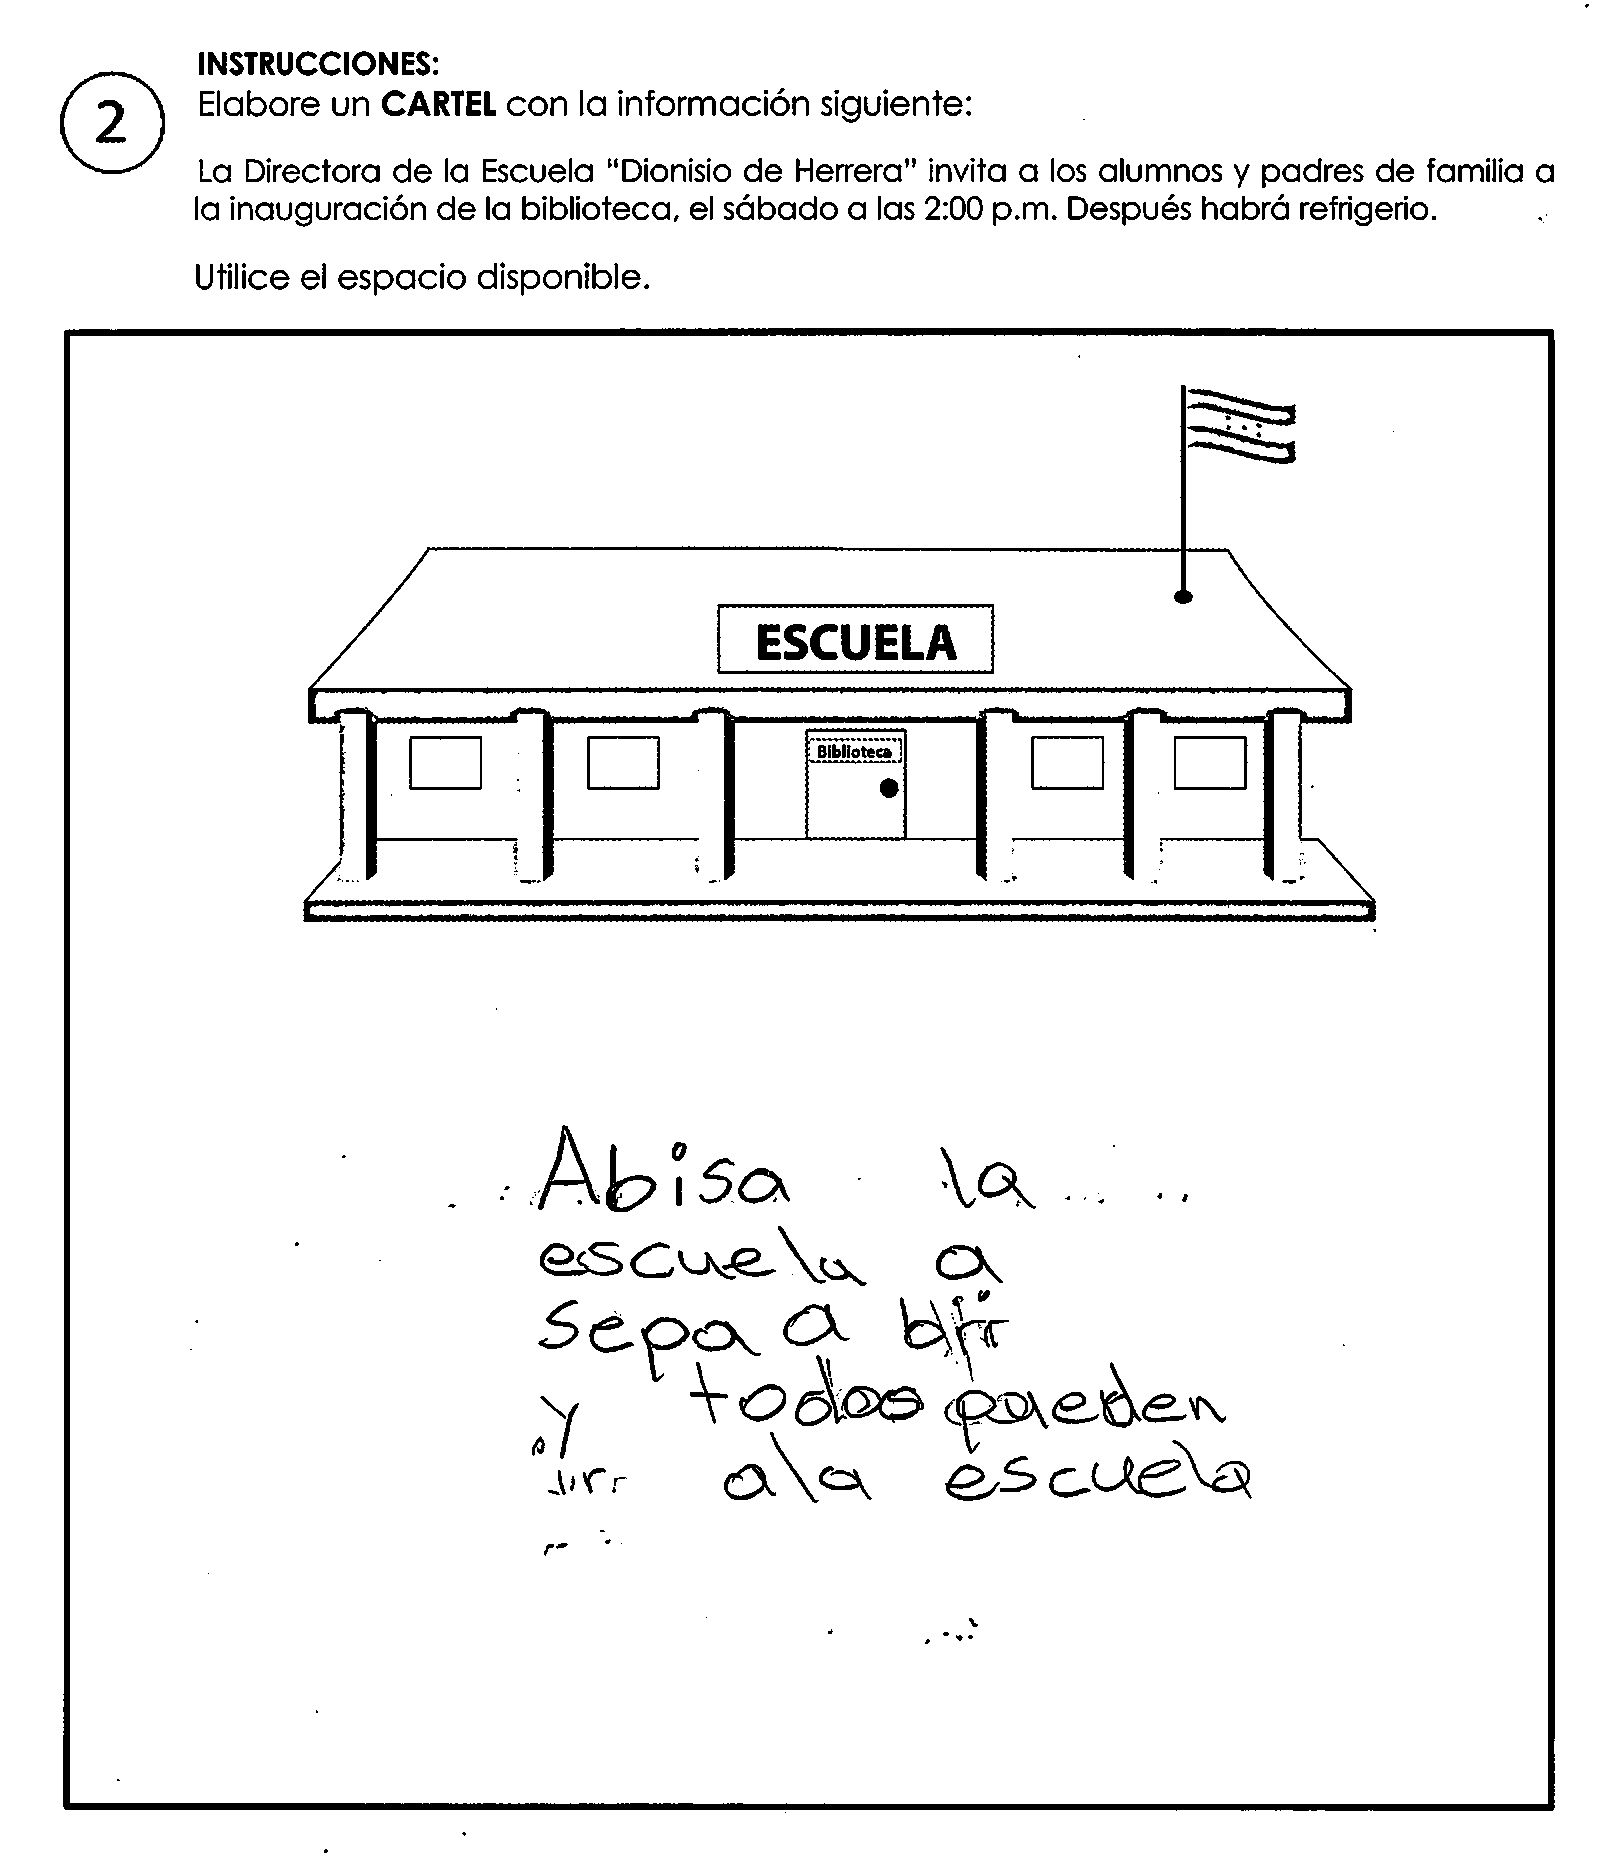 INSTRUCCIONES:
2
Elabore un CARTEL con la información siguiente:
La Directora de la Escuela "Dionisio de Herrera" invita a los alumnos y padres de familia a
la inauguración de la biblioteca, el sábado a las 2:00 p.m. Después habrá refrigerio.
Utilice el espacio disponible.
ESCUELA
Biblioteca
Abisa la
escuela a
sepa a brir
y todos pueden
irr ala escuela